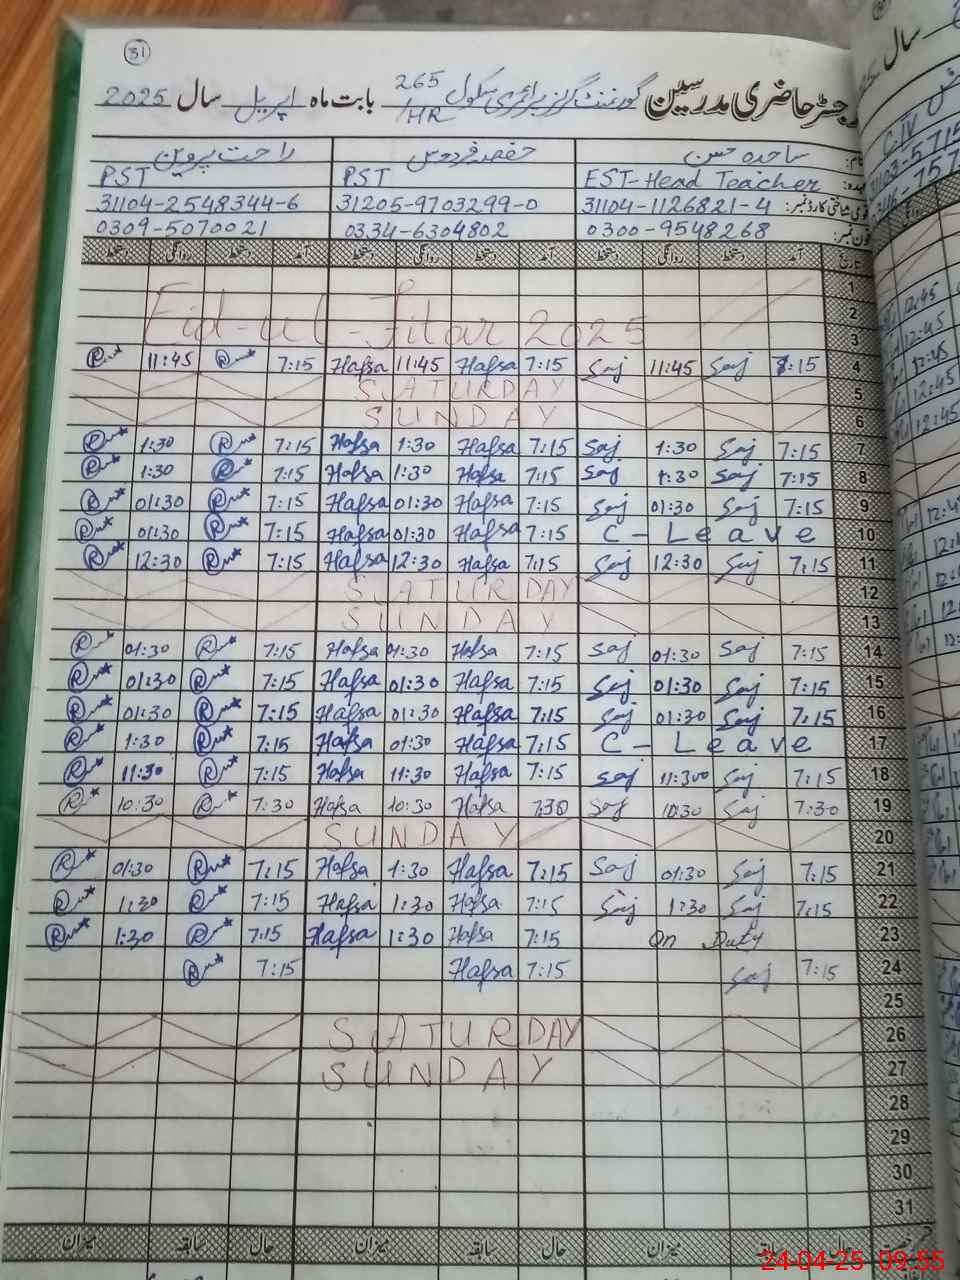 31
رجسٹر حاضری مدرسین گورنمنٹ گرلز پرائمری سکول 265/HR بابت ماہ اپریل سال 2025
نام: ساجدہ حسن حفصہ فردوس راحت پروین
عہدہ: EST-Head Teacher PST PST
قومی شناختی کارڈ نمبر: 31104-1126821-4 31205-9703299-0 31104-2548344-6
فون نمبر: 0300-9548268 0334-6304802 0309-5070021
تاریخ آمد دستخط روانگی دستخط آمد دستخط روانگی دستخط آمد دستخط روانگی دستخط
1
2
Eid-ul-Fitar 2025
3
11:45 7:15 Hafsa 11:45 Hafsa 7:15 Saj 11:45 Saj 7:15 4
SATURDAY 5
SUNDAY 6
1:30 7:15 Hafsa 1:30 Hafsa 7:15 Saj 1:30 Saj 7:15 7
1:30 7:15 Hafsa 1:30 Hafsa 7:15 Saj 1:30 Saj 7:15 8
01:30 7:15 Hafsa 01:30 Hafsa 7:15 Saj 01:30 Saj 7:15 9
01:30 7:15 Hafsa 01:30 Hafsa 7:15 C-Leave 10
12:30 7:15 Hafsa 12:30 Hafsa 7:15 Saj 12:30 Saj 7:15 11
SATURDAY 12
SUNDAY 13
01:30 7:15 Hafsa 01:30 Hafsa 7:15 Saj 01:30 Saj 7:15 14
01:30 7:15 Hafsa 01:30 Hafsa 7:15 Saj 01:30 Saj 7:15 15
01:30 7:15 Hafsa 01:30 Hafsa 7:15 Saj 01:30 Saj 7:15 16
1:30 7:15 Hafsa 01:30 Hafsa 7:15 C-Leave 17
11:30 7:15 Hafsa 11:30 Hafsa 7:15 Saj 11:300 Saj 7:15 18
10:30 7:30 Hafsa 10:30 Hafsa 7:30 Saj 10:30 Saj 7:30 19
SUNDAY 20
01:30 7:15 Hafsa 1:30 Hafsa 7:15 Saj 01:30 Saj 7:15 21
1:30 7:15 Hafsa 1:30 Hafsa 7:15 Saj 1:30 Saj 7:15 22
1:30 7:15 Hafsa 1:30 Hafsa 7:15 On Duty 23
7:15 Hafsa 7:15 Saj 7:15 24
25
SATURDAY 26
SUNDAY 27
28
29
30
31
حال سابقہ میزان حال سابقہ میزان حال سابقہ میزان
24-04-25 09:55